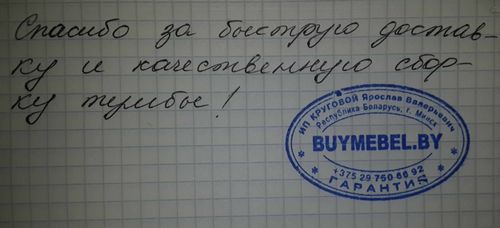 Спасибо за быструю достав-
ку и качественную сбор-
ку тумбы!
ИП КРУГОВОЙ Ярослав Валерьевич
Республика Беларусь, г. Минск
BUYMEBEL.BY
+375 29 750 60 92
* ГАРАНТИЯ *